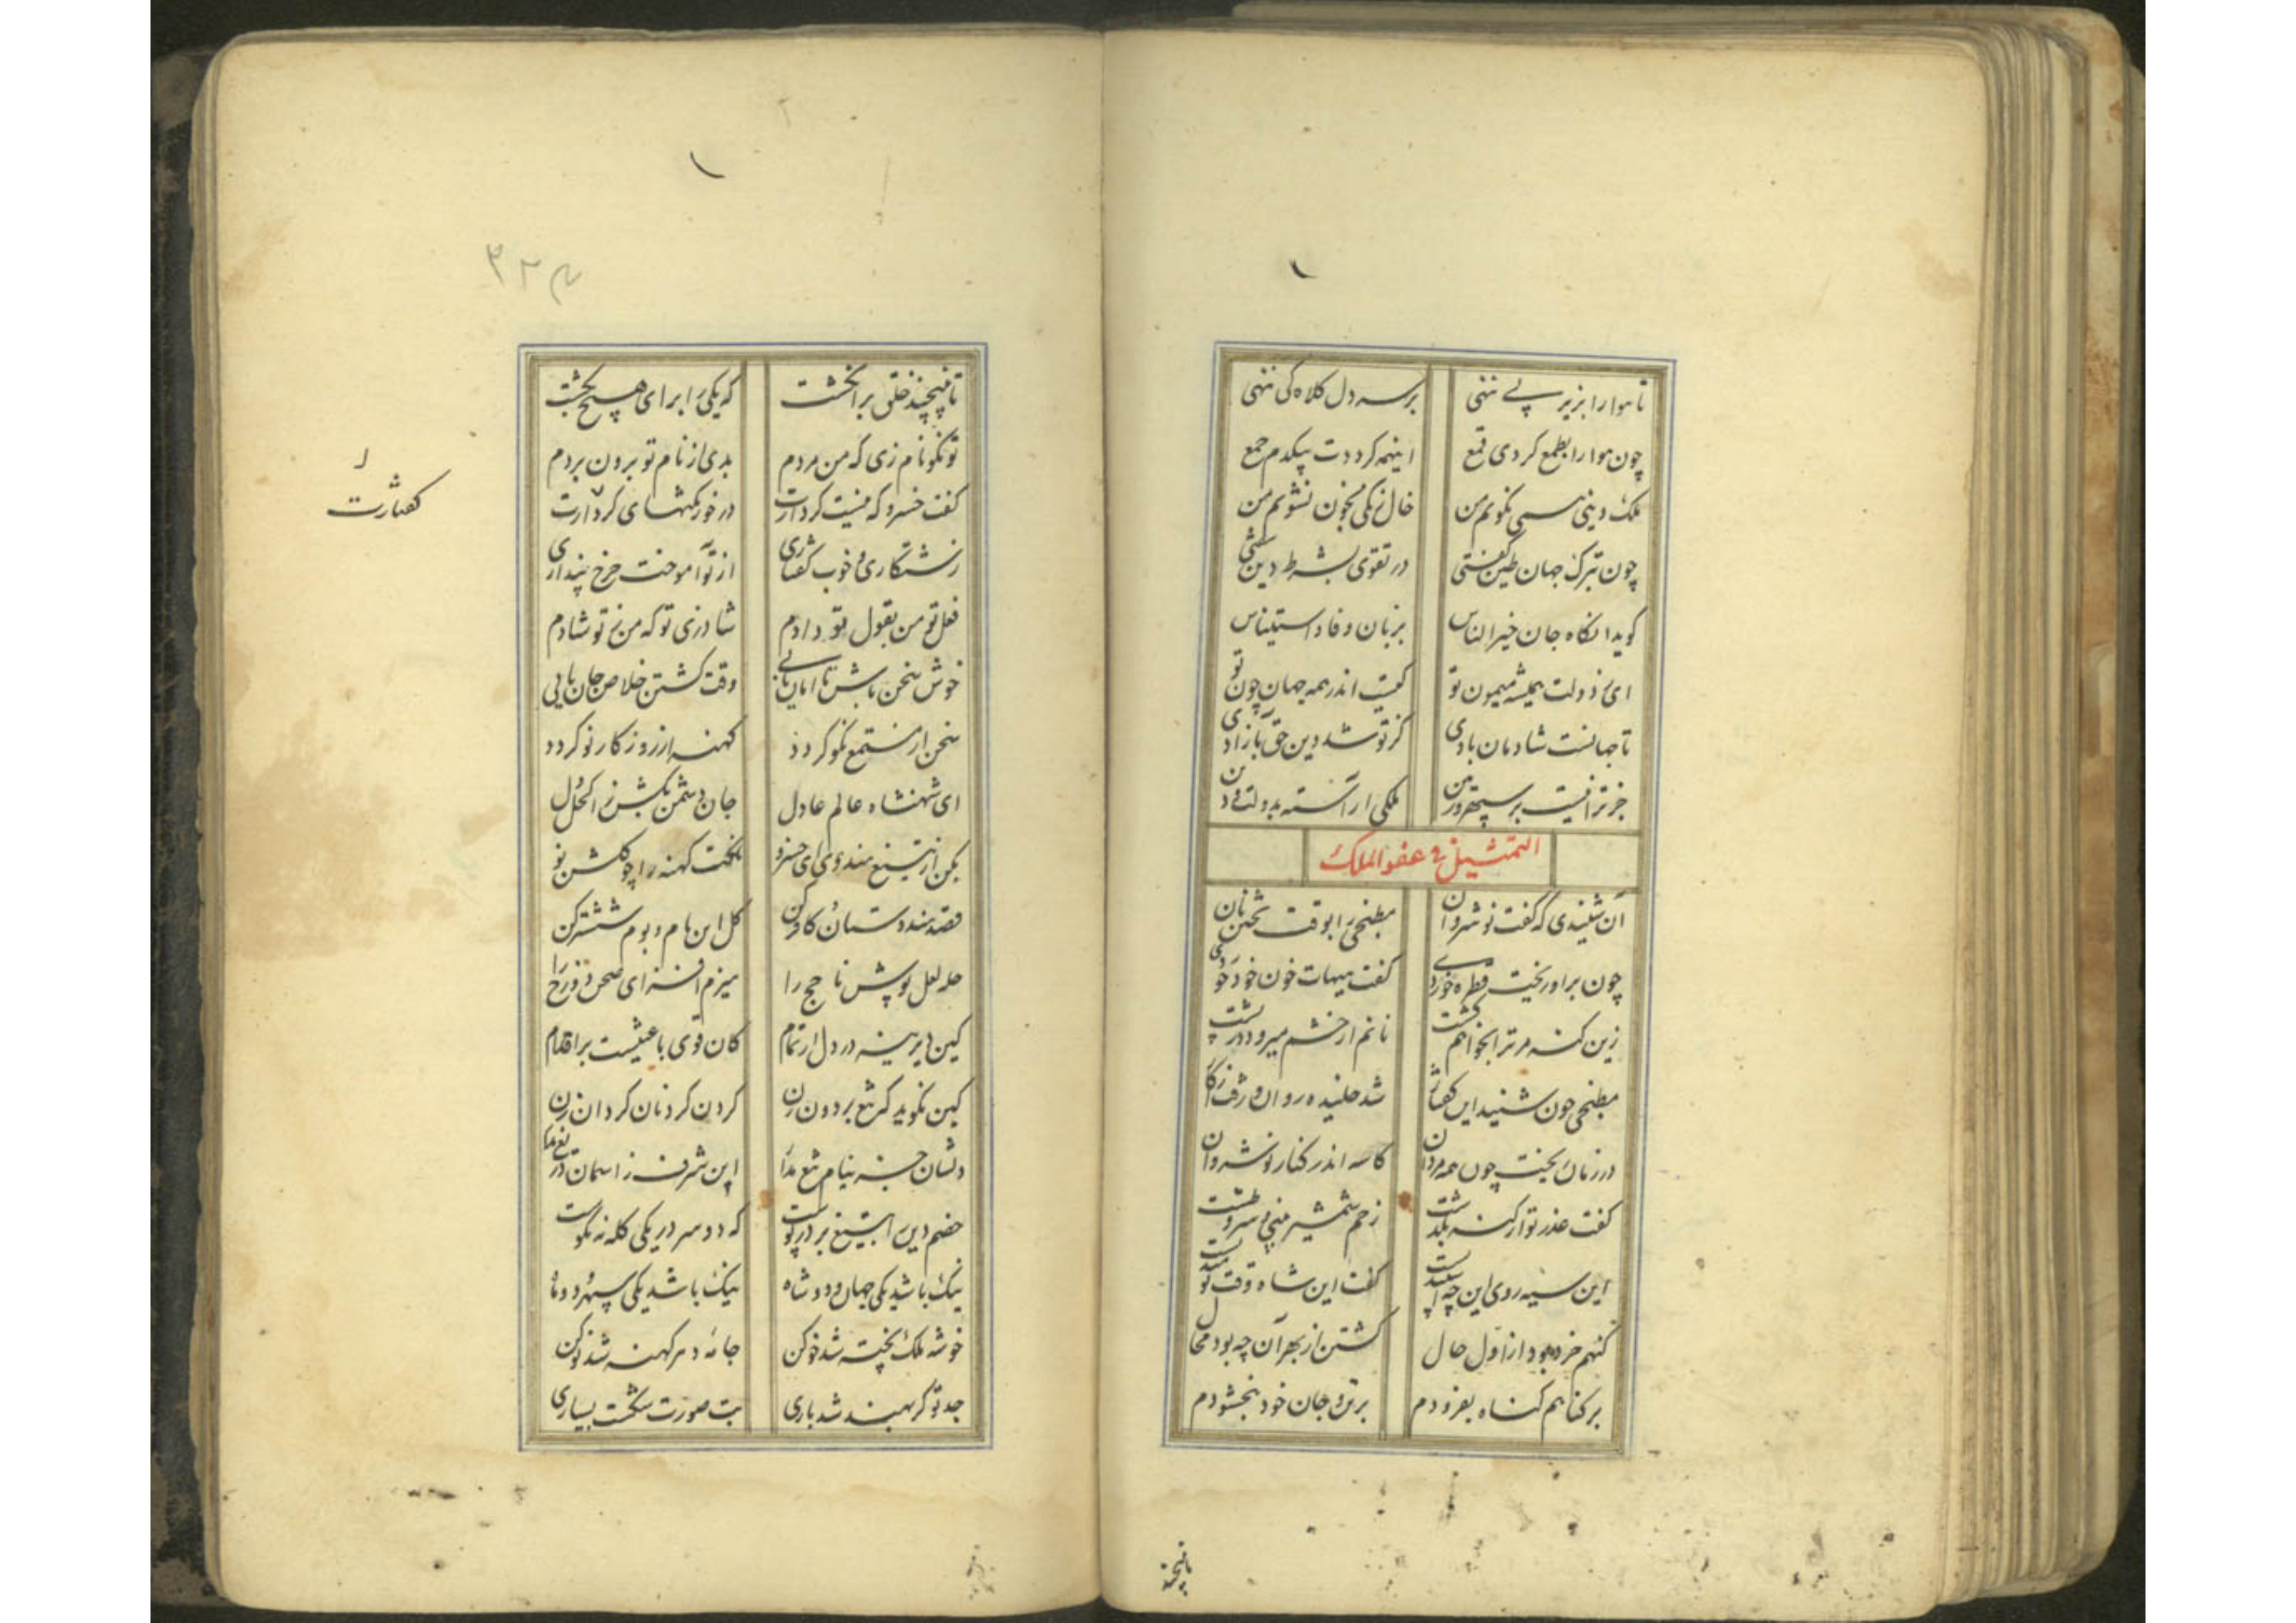 تا هوا را بزیر پی ننهی
بر سر دل کلاه کی ننهی
چون هوا را بطمع کردی قمع
اینهمه کرددت بیکدم جمع
ملک دینی
خال زنگی بخون نشویم من
چون بترک جهان طین گفتی
در تقوی بشرط دین سفتی
گوید انگاه جان خیر الناس
بزبان وفا و استیناس
ای ز دولت همیشه میمون تو
کیست اندر همه جهان چون تو
تا جهانست شادمان بادی
کز تو شد دین حق بآزادی
جز ترا نیست بر سپهر و زمین
ملکی آراسته بدولت و دین
التمثیل فی عفو الملک
آن شنیدی که گفت نوشروان
مطبخی را بوقت شحن نان
چون براو ریخت قطره خوردی
گفت هیهات خون خود خوردی
زین گنه مر ترا بخواهم کشت
نانم از خشم میرود در پشت
مطبخی چون شنید این گفتار
شد خلنده روان و ژرف انگار
در زمان ریخت چون همه مردان
کاسه اندر کنار نوشروان
گفت عذر تو از گنه بگذشت
زخم شمشیر بینی و سر و طشت
این سیه روی این چه اسپیدست
گفت این شاه وقت نومیدست
گنهم خرد بود از اول حال
کشتن از بهر آن چه بود محال
بر گناهم گناه بفزودم
بر تن و جان خود نبخشودم
تا نپیچند
تا نپیچند خلق بر انگشت
که یکی را برای هیچ بکشت
تو نکونام زی که من مردم
بدی از نام تو برون بردم
گفت خسرو که نیست کردارت
در خور نکتهای گفتارت
زشتکاری و خوب گفتاری
از تو آموخت چرخ پنداری
فعل تو من بقول تو دادم
شاد زی تو که من ز تو شادم
خوش سخن باش تا امان یابی
وقت کشتن خلاص جان یابی
سخن از مستمع نکو گردد
کهنه از روزگار نو گردد
ای شهنشاه عالم عادل
جان دشمن بکش ز
بکن از تیغ هندوی ای خسرو
تخت کهنه را چو گلشن نو
قصد هندوستان کافر کن
گل این بام و بوم ششتر کن
حله لعل پوش ناجج را
هیزم افسر ای صحن دوزخ را
کین دیرینه در دل از تمام
کان قوی باعثیست بر اقدام
کین نگوید که تیغ بر دون زن
گردن گردنان گردان زن
دلشان جز نیام تیغ مدار
این شرف ز آسمان دریغ مدار
خصم دین را بتیغ بر در پوست
که دو سر در یکی کله نه نکوست
نیک باشد یکی جهان و دو شاه
نیک باشد یکی سپهر و دو ماه
خوشه ملک پخته شد خو کن
جامه دهر کهنه شد نو کن
جد تو گر بهند شد باری
بت صورت شکست بسیاری
گفتارت
۳۲۴